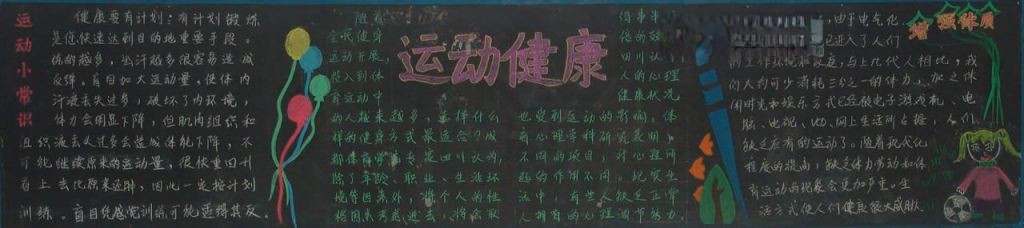 运动小常识
健康要有计划:有计划锻炼
是您快速达到目的地重要手段。
练的越多,出汗越多很容易造成
反弹,盲目加大运动量,使体内
汗液丢失过多,破坏了内环境,
体力会明显下降,但肌肉组织和
组织液丢失过多会造成体能下降,不
可能继续原来的运动量,很快重回到
看上去比原来还胖,因此一定按计划
训练。盲目凭感觉训练可能适得其反。
运动健康
随着
全民健身
运动开展,
些人到体
育运动中
的人越来越多,荃样什么
样的健身方式最适合?成
都体育学
除了年龄、职业、生活环
境等因素外,将个人的性
格因素考虑进去,将会取
得事半
倍的效
四川认
人的心理
健康状况
也受到运动的影响,体
育心理学科研究表明,
不同的项目,对心理所
起的作用不同。现实生
活中,有些人缺乏正常
人拥有的心理调节努力,
增强体质
,由于电气化
已进入了人们
的工作环境和家庭,与上几代人相比,我
们大约可少消耗三分之一的体力,加之休
闲时光和娱乐方式已经被电子游戏机、电
脑、电视、VCD、网上生活所占据,人们
缺乏应有的运动了。随着现代化
程度的提高,缺乏体力劳动和体
育运动的现象会更加严重。生
活方式使人们健康很大威胁。